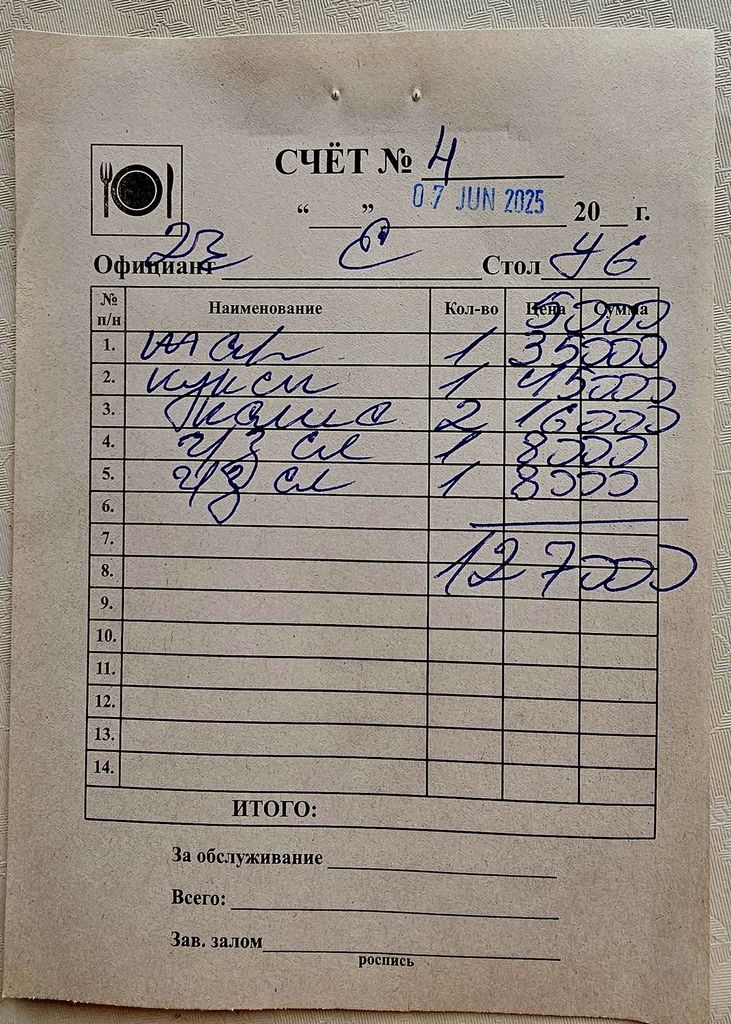 СЧЁТ № 4
“ ” 07 JUN 2025 20 г.
Официант 22 С Стол 46
№ п/н Наименование Кол-во Цена Сумма
5000
1. шар 1 35000
2. кукси 1 45000
3. 2 16000
4. ч/з сл 1 8000
5. ч/з сл 1 8000
6.
7.
8. 127000
9.
10.
11.
12.
13.
14.
ИТОГО:
За обслуживание
Всего:
Зав. залом
роспись